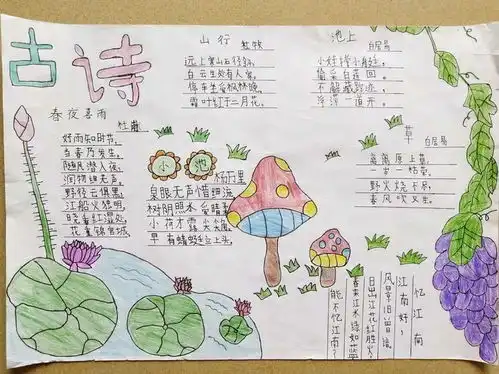 古诗
山行 杜牧
远上寒山石径斜,
白云生处有人家,
停车坐爱枫林晚,
霜叶红于二月花。
池上
白居易
小娃撑小艇,
偷采白莲回。
不解藏踪迹,
浮萍一道开。
春夜喜雨
杜甫
好雨知时节,
当春乃发生。
随风潜入夜,
润物细无声。
野径云俱黑,
江船火独明。
晓看红湿处,
花重锦官城。
小池
杨万里
泉眼无声惜细流
树阴照水爱晴柔
小荷才露尖尖角
早有蜻蜓立上头。
草
白居易
离离原上草,
一岁一枯荣。
野火烧不尽,
春风吹又生。
忆江南
江南好,
风景旧曾谙
日出江花红胜火,
春来江水绿如蓝
能不忆江南?